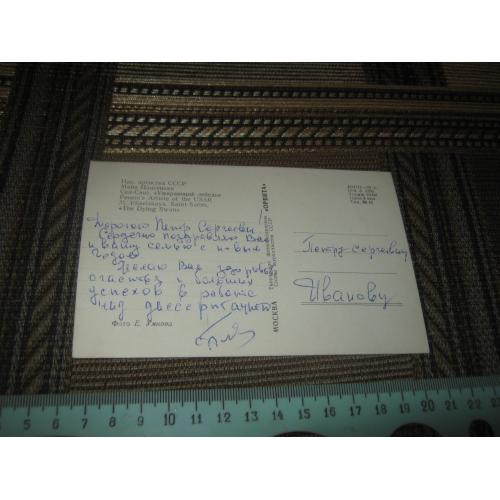 Нар. артистка СССР
Майя Плисецкая
Сен-Санс. «Умирающий лебедь»
People's Artiste of the USSR
M. Plisetskaya. Saint Saens,
«The Dying Swan»
Дорогой Петр Сергеевич!
Сердечно поздравляю Вас
и вашу семью с новым
годом!
Желаю Вам здоровья
счастья и больших
успехов в работе
над диссертацией
Фото Е. Умнова
МОСКВА
«ОРБИТА»
Петру Сергеевичу
Иванову
5 6 7 8 9 10 11 12 13 14 15 16 17 18 19 20 21 22